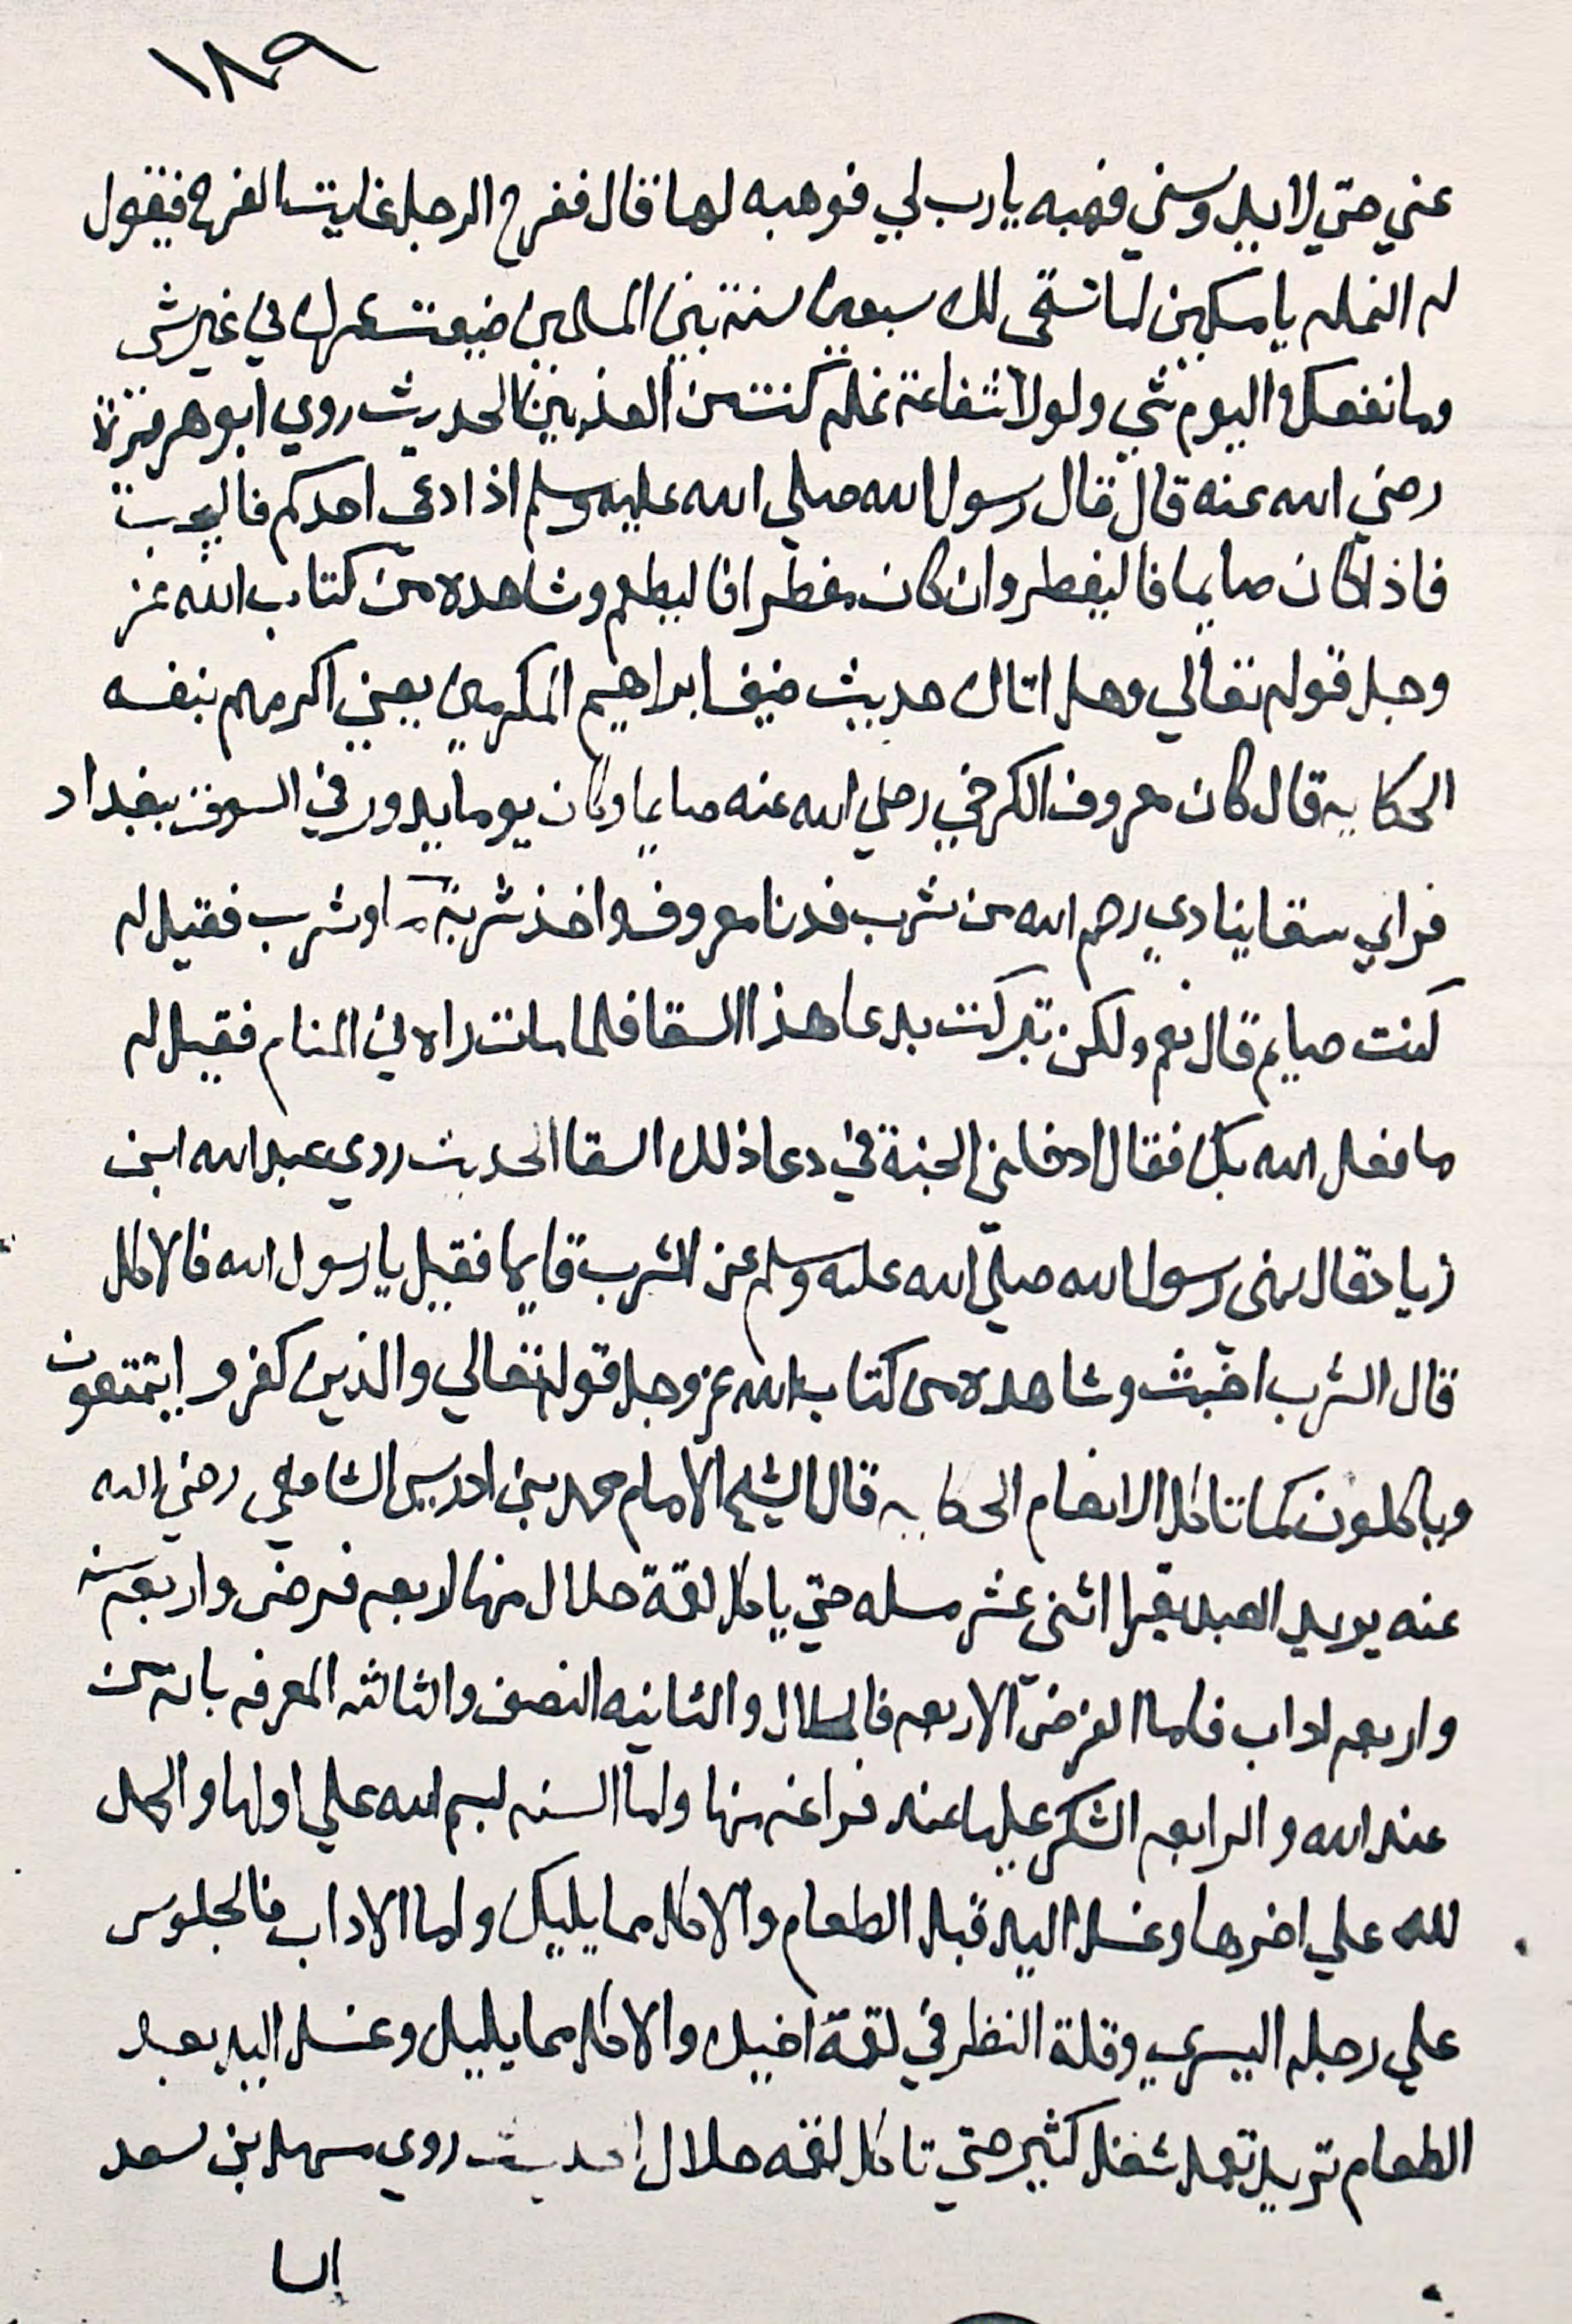 ١٨٩
عني حتي لا يدوسني فهبه يا رب لي فوهبه لها قال ففرح الرجل غايت الفرح فيقول
له النمله يا مسكين لما تسقى لك سبعين سنة بين المسلمين ضيعت عمرك في غير شي
وما نفعك اليوم شي ولولا شفاعة نمله كنت من المعذبين الحديث روي ابو هريرة
رضي الله عنه قال قال رسول الله صلي الله عليه وسلم اذا دعى احدكم فاليجب
فاذا كان صايما فاليفطر وان كان مفطرا فاليطعم وشاهده من كتاب الله عز
وجل قوله تعالي وهل اتاك حديث ضيف ابراهيم المكرمين يعني اكرمهم بنفسه
الحكايه قال كان معروف الكرخي رضي الله عنه صايما وكان يوما يدور في السوق ببغداد
فراي سقا ينادي رحم الله من شرب فدنا معروف واخذ شربة ما وشرب فقيل له
كنت صايم قال نعم ولكن تبركت بدعا هذا السقا فلما مات راه في المنام فقيل له
ما فعل الله بك فقال ادخلني الجنة في دعا ذلك السقا الحديث روي عبد الله ابن
زياد قال نهى رسول الله صلي الله عليه وسلم عن الشرب قايما فقيل يا رسول الله فالاكل
قال الشرب اخبث وشاهده من كتاب الله عز وجل قوله تعالي والذين كفروا يتمتعون
وياكلون كما تاكل الانعام الحكايه قال الشيخ الامام محمد بن ادريس الشافعي رضي الله
عنه يريد العبد يقرا اثنى عشر مسله حتي ياكل لقمة حلال منها اربعه فرض واربعه سنه
واربعه اداب فاما الفرض الاربعه فالحلال والثانيه النصف والثالثه المعرفه بانه من
عند الله والرابعه الشكر عليها عند فراغه منها واما السنه بسم الله علي اولها والحمد
لله علي اخرها وغسل اليد قبل الطعام والاكل مما يليك واما الاداب فالجلوس
علي رجله اليسري وقلة النظر في لقمة اخيك والاكل مما يليك وغسل اليد بعد
الطعام تريد تعمل شغل كثير حتي تاكل لقمه حلال الحديث روي سهل بن سعد